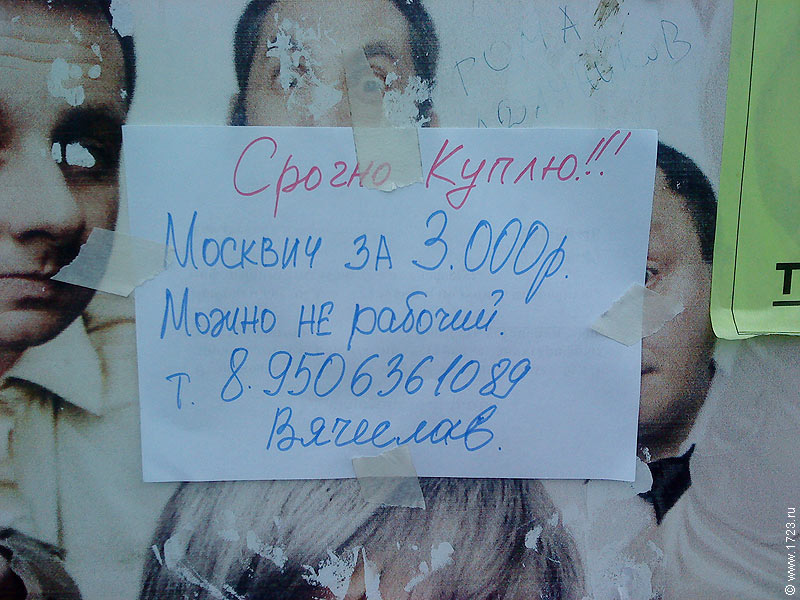 РОМА
Срочно Куплю!!!
Москвич за 3.000р.
Можно не рабочий.
т. 8.9506361089
Вячеслав.
Т
© www.1723.ru